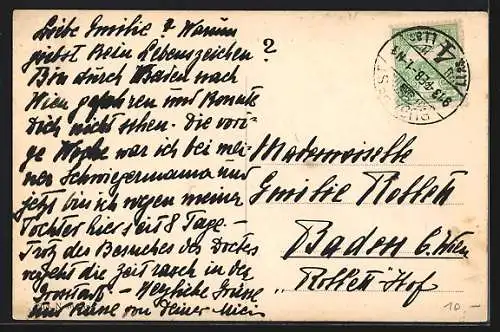 Liebe Emilie? Warum
giebst kein Lebenszeichen?
Bin durch Baden nach
Wien gefahren und konnte
Dich nicht sehen. Die vori-
ge Woche war ich bei mei-
ner Schwiegermama und
jetzt bin ich wegen meiner
Tochter hier seit 8 Tage. –
Trotz des Besuches des
vergeht die Zeit rasch in der
– Herzliche Grüsse
und Küsse von Deiner
Mademoiselle
Emilie Rollett
Baden b. Wien
„Rollett" Hof
10 –